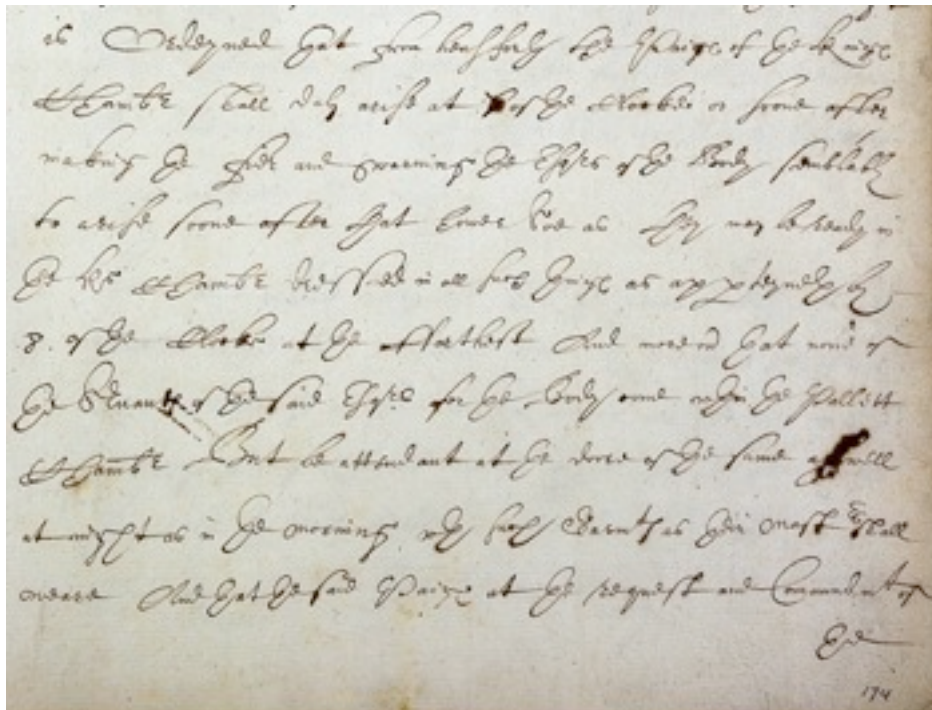 is Ordeyned that from henshforth the Paige of the Kings
Chambr shall daly arise at of the Clocke or soone after
making the fier and warning the Esqrs of the Body semblably
to arise soone after that hower Soe as they may be ready in
the Ks Chambr dressed in all such things as apperteyneth by
8. of the Clocke at the affarthest And moreover that none of
the Servants of the said Esqrs for the Body come within the Pallett
Chambr But be attendant at the doore of the same aswell
at night as in the morning with such Garmts as their Mast shall
weare And that the said Paige at the request and Comaundmt of
the
174